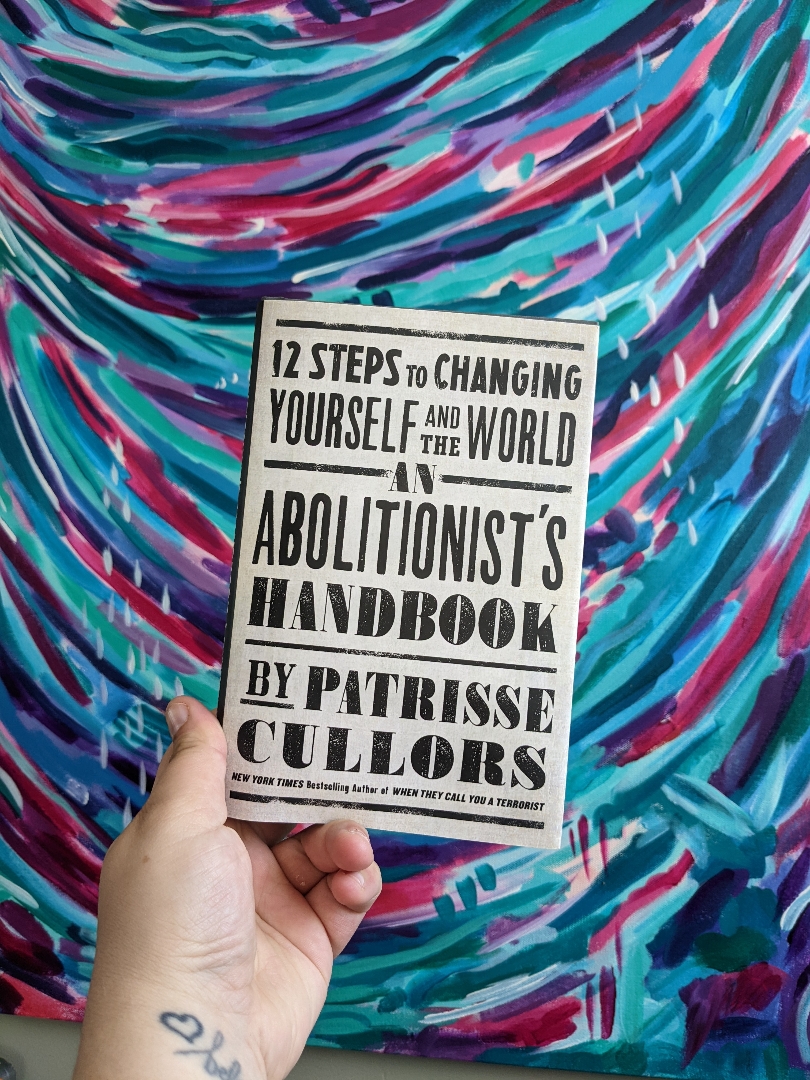 12 STEPS TO CHANGING
YOURSELF AND THE WORLD
AN
ABOLITIONIST'S
HANDBOOK
BY PATRISSE
CULLORS
NEW YORK TIMES Bestselling Author of WHEN THEY CALL YOU A TERRORIST